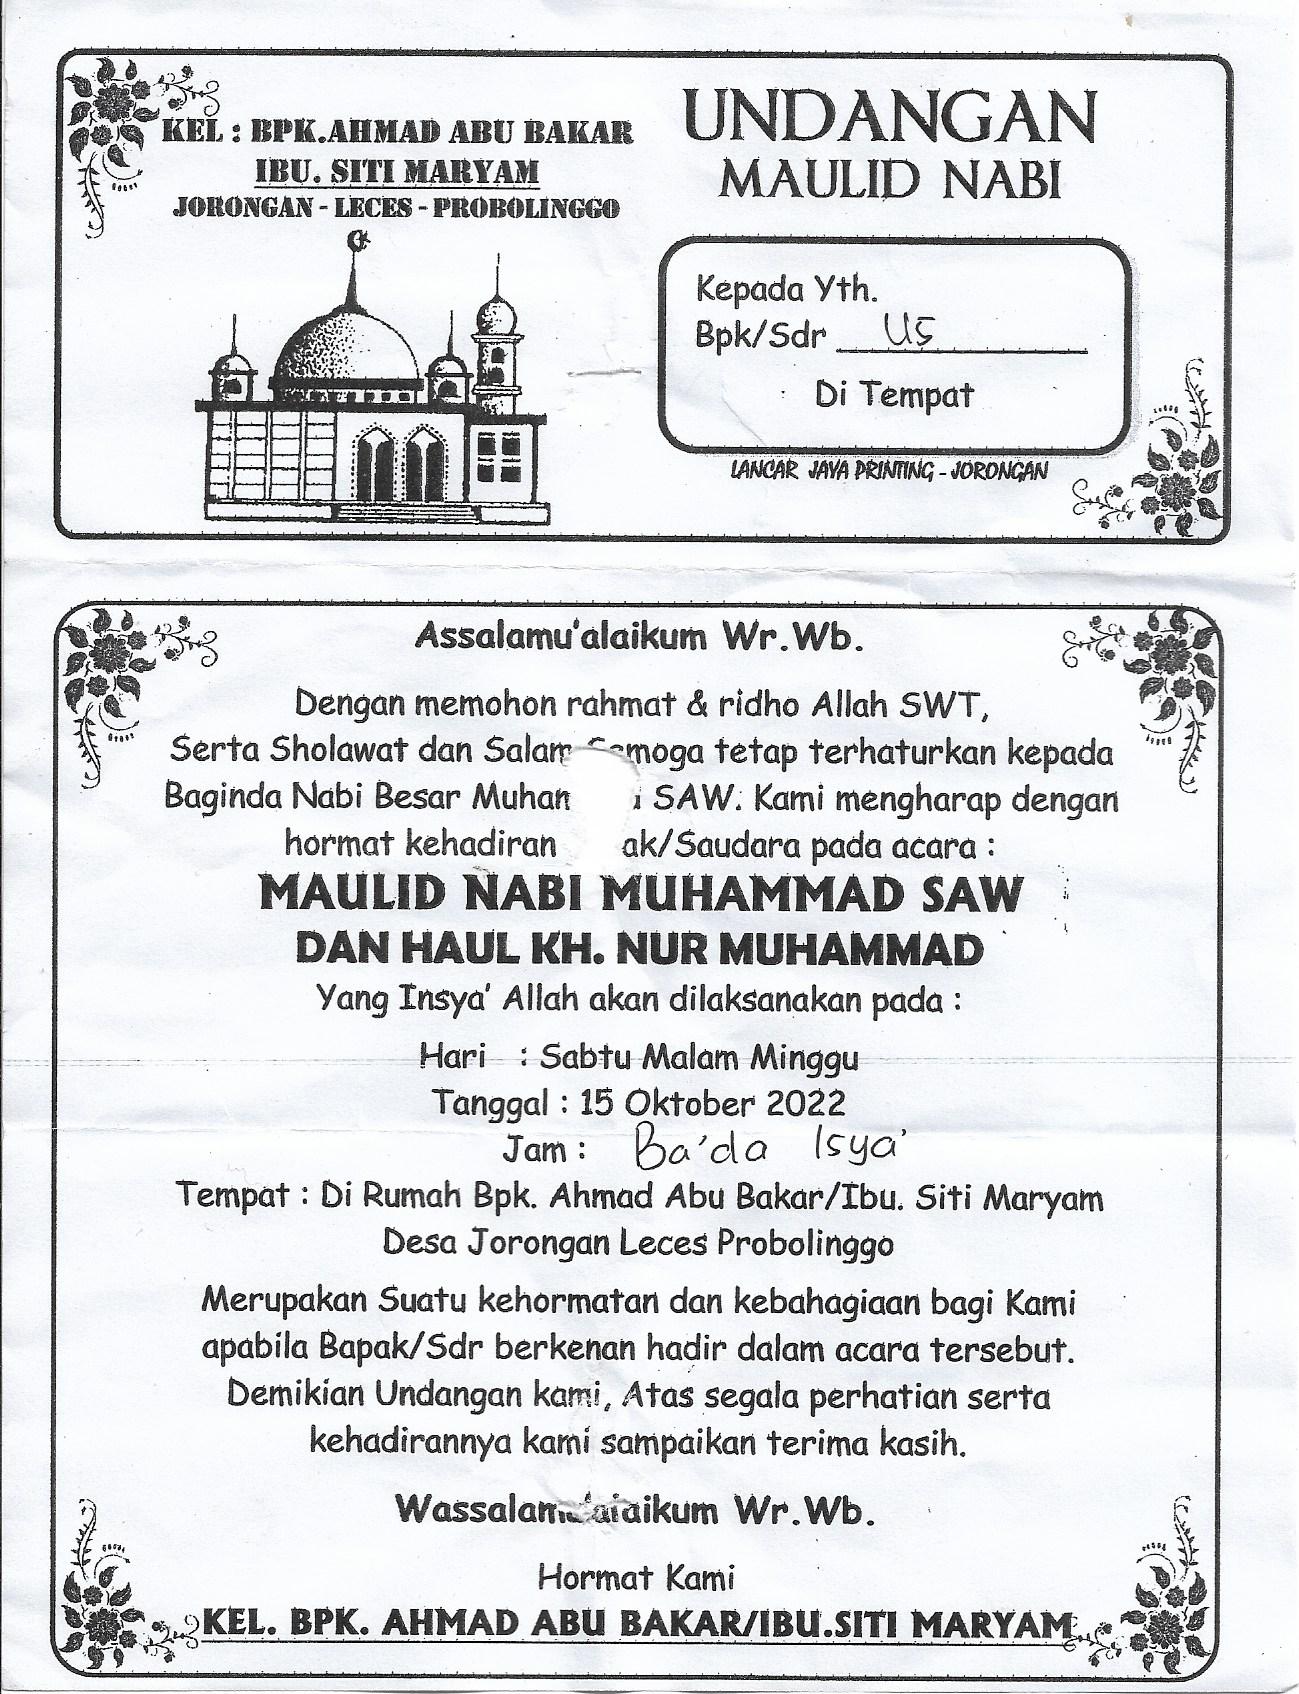 KEL : BPK.AHMAD ABU BAKAR
IBU. SITI MARYAM
JORONGAN - LECES - PROBOLINGGO
UNDANGAN
MAULID NABI
Kepada Yth.
Bpk/Sdr US
Di Tempat
LANCAR JAYA PRINTING - JORONGAN
Assalamu'alaikum Wr.Wb.
Dengan memohon rahmat & ridho Allah SWT,
Serta Sholawat dan Salam Semoga tetap terhaturkan kepada
Baginda Nabi Besar SAW. Kami mengharap dengan
hormat kehadiran ak/Saudara pada acara :
MAULID NABI MUHAMMAD SAW
DAN HAUL KH. NUR MUHAMMAD
Yang Insya' Allah akan dilaksanakan pada :
Hari : Sabtu Malam Minggu
Tanggal : 15 Oktober 2022
Jam : Ba'da Isya'
Tempat : Di Rumah Bpk. Ahmad Abu Bakar/Ibu. Siti Maryam
Desa Jorongan Leces Probolinggo
Merupakan Suatu kehormatan dan kebahagiaan bagi Kami
apabila Bapak/Sdr berkenan hadir dalam acara tersebut.
Demikian Undangan kami, Atas segala perhatian serta
kehadirannya kami sampaikan terima kasih.
Wassalamu'alaikum Wr.Wb.
Hormat Kami
KEL. BPK. AHMAD ABU BAKAR/IBU.SITI MARYAM